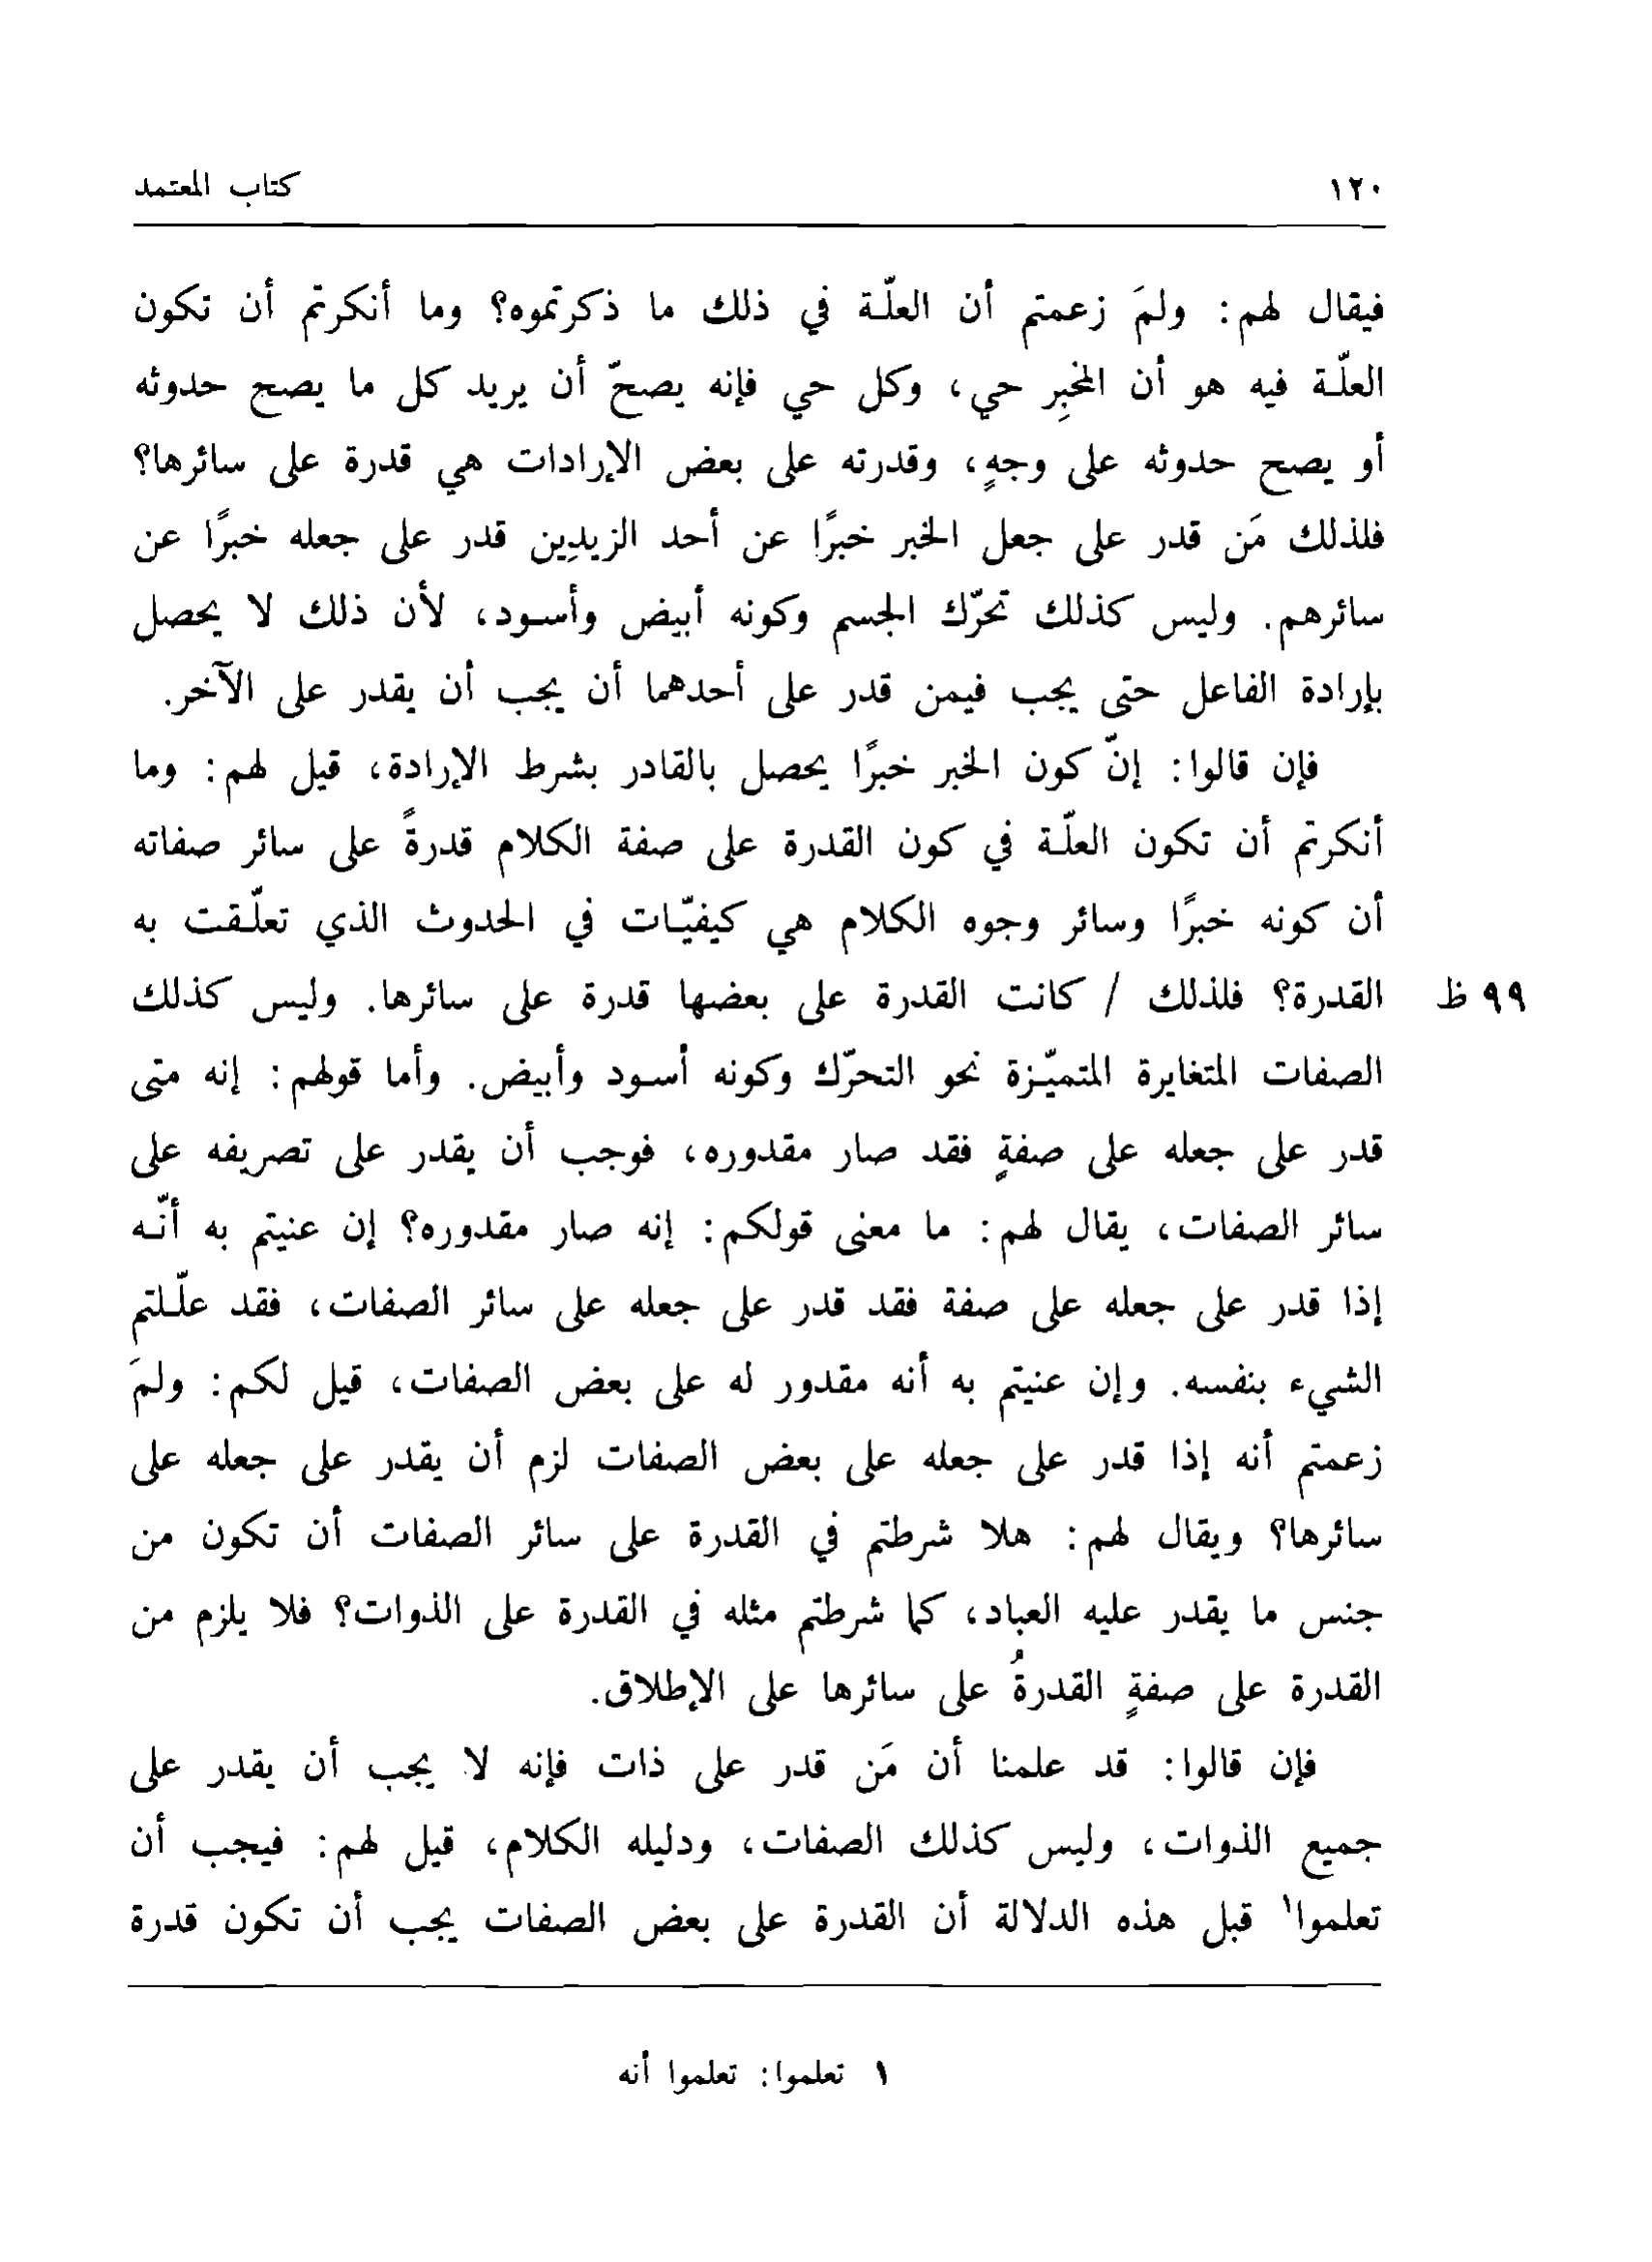 ١٢٠ كتاب المعتمد
فيقال لهم: ولمَ زعمتم أن العلّة في ذلك ما ذكرتموه؟ وما أنكرتم أن تكون
العلّة فيه هو أن المخبِر حي، وكل حي فإنه يصحّ أن يريد كل ما يصح حدوثه
أو يصح حدوثه على وجهٍ، وقدرته على بعض الإرادات هي قدرة على سائرها؟
فلذلك مَن قدر على جعل الخبر خبرًا عن أحد الزيدِين قدر على جعله خبرًا عن
سائرهم. وليس كذلك تحرّك الجسم وكونه أبيض وأسود، لأن ذلك لا يحصل
بإرادة الفاعل حتى يجب فيمن قدر على أحدهما أن يجب أن يقدر على الآخر.
فإن قالوا: إنّ كون الخبر خبرًا يحصل بالقادر بشرط الإرادة، قيل لهم: وما
أنكرتم أن تكون العلّة في كون القدرة على صفة الكلام قدرةً على سائر صفاته
أن كونه خبرًا وسائر وجوه الكلام هي كيفيّات في الحدوث الذي تعلّقت به
القدرة؟ فلذلك / كانت القدرة على بعضها قدرة على سائرها. وليس كذلك ٩٩ ظ
الصفات المتغايرة المتميّزة نحو التحرّك وكونه أسود وأبيض. وأما قولهم: إنه متى
قدر على جعله على صفةٍ فقد صار مقدوره، فوجب أن يقدر على تصريفه على
سائر الصفات، يقال لهم: ما معنى قولكم: إنه صار مقدوره؟ إن عنيتم به أنّه
إذا قدر على جعله على صفة فقد قدر على جعله على سائر الصفات، فقد علّلتم
الشيء بنفسه. وإن عنيتم به أنه مقدور له على بعض الصفات، قيل لكم: ولمَ
زعمتم أنه إذا قدر على جعله على بعض الصفات لزم أن يقدر على جعله على
سائرها؟ ويقال لهم: هلا شرطتم في القدرة على سائر الصفات أن تكون من
جنس ما يقدر عليه العباد، كما شرطتم مثله في القدرة على الذوات؟ فلا يلزم من
القدرة على صفةٍ القدرةُ على سائرها على الإطلاق.
فإن قالوا: قد علمنا أن مَن قدر على ذات فإنه لا يجب أن يقدر على
جميع الذوات، وليس كذلك الصفات، ودليله الكلام، قيل لهم: فيجب أن
تعلموا١ قبل هذه الدلالة أن القدرة على بعض الصفات يجب أن تكون قدرة
١ تعلموا: تعلموا أنه